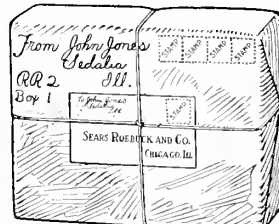 From John Jones
Sedalia
RR 2 Ill.
Box 1
STAMP STAMP STAMP STAMP
To John Jones
Sedalia
Ill
STAMP
SEARS ROEBUCK AND CO.
CHICAGO. ILL